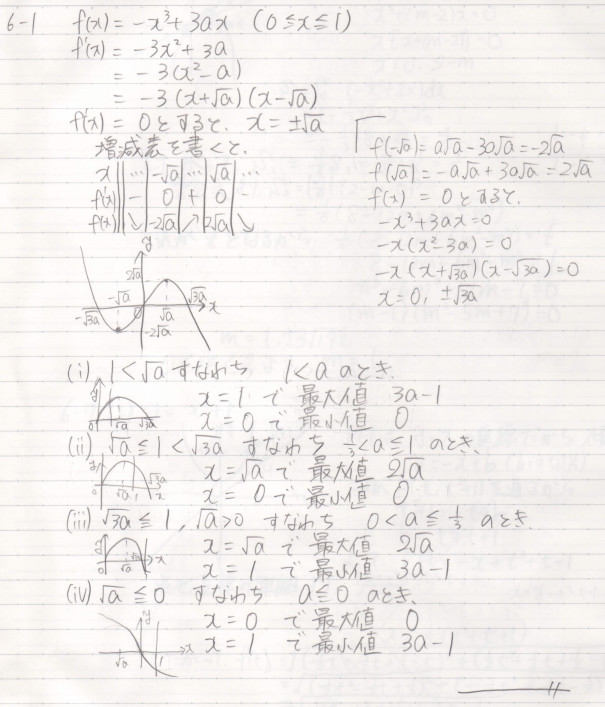 6-1 f(x) = -x³+3ax (0≦x≦1)
f'(x) = -3x²+3a
= -3(x²-a)
= -3(x+√a)(x-√a)
f'(x) = 0とすると、x=±√a
増減表を書くと、
x … -√a … √a …
f'(x) - 0 + 0
f(x) ↘ -2√a ↗ 2√a ↘
f(-√a) = a√a-3a√a=-2√a
f(√a) = -a√a+3a√a=2√a
f(x) = 0とすると、
-x³+3ax=0
-x(x²-3a)=0
-x(x+√3a)(x-√3a)=0
x=0, ±√3a
y
2√a
-√a
-√3a
0
√a
√3a
x
-2√a
(i) 1<√a すなわち 1<a のとき、
x=1 で 最大値 3a-1
x=0 で 最小値 0
y
0
√a
√3a
(ii) √a≦1<√3a すなわち 1/3<a≦1 のとき、
x=√a で 最大値 2√a
x=0 で 最小値 0
y
0
√a
1
√3a
x
(iii) √3a≦1, √a>0 すなわち 0<a≦1/3 のとき、
x=√a で 最大値 2√a
x=1 で 最小値 3a-1
y
0
x
(iv) √a≦0 すなわち a≦0 のとき、
x=0 で 最大値 0
x=1 で 最小値 3a-1
y
√a
1
x